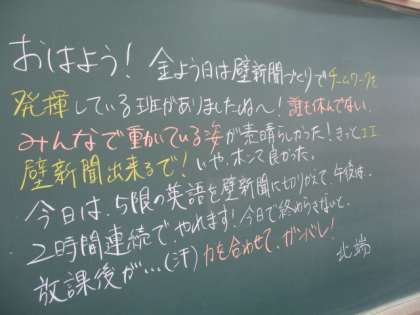 おはよう! 金よう日は壁新聞づくりでチームワークを
発揮している班がありましたぬ〜! 誰も休んでない。
みんなで動いている姿が素晴らしかった! きっとエエ
壁新聞出来るで! いや、ホンマ良かった。
今日は、5限の英語を壁新聞に切りかえて、午後は、
2時間連続で、やれます! 今日で終わらさないと、
放課後が…(汗) 力を合わせて、ガンバレ!
北端